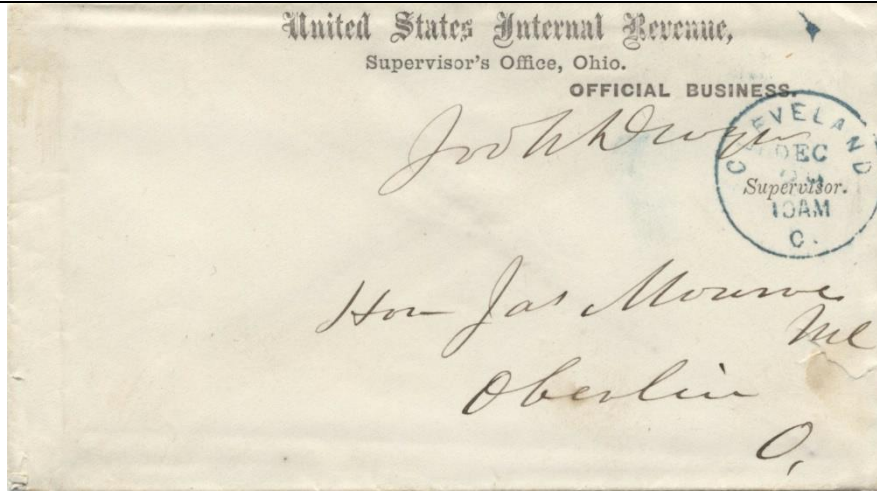 United States Internal Revenue,
Supervisor's Office, Ohio.
OFFICIAL BUSINESS.
CLEVELAND
DEC
Supervisor.
10AM
O.
Hon Jas Monroe
MC
Oberlin
O,